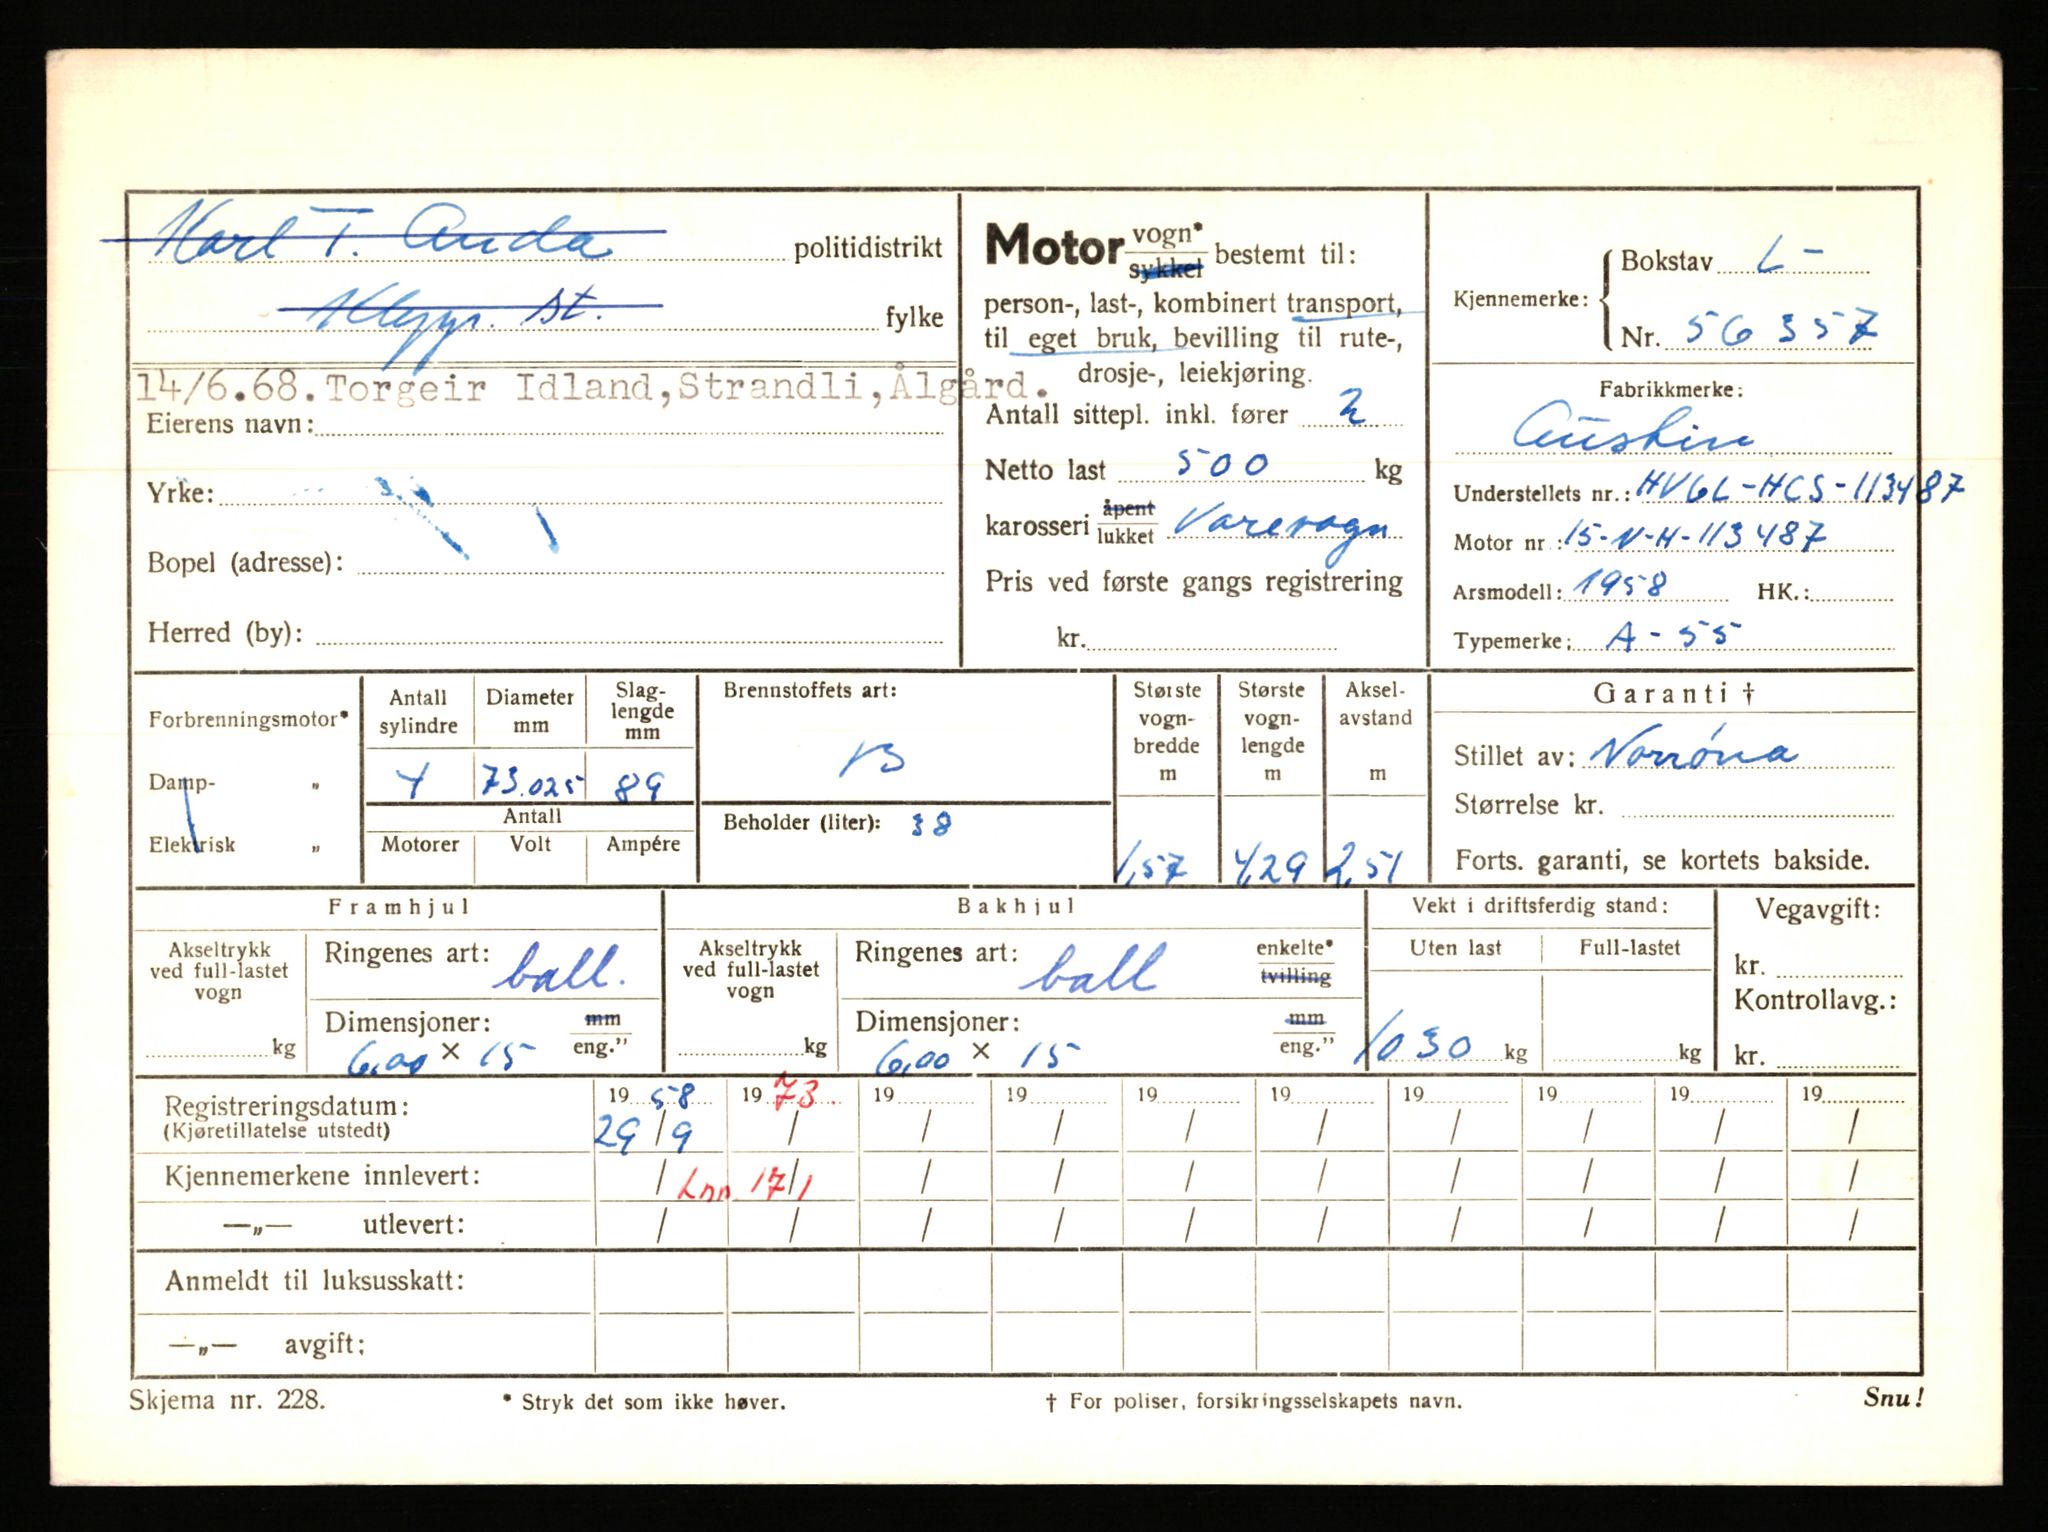 Karl T. Anda politidistrikt
Klepp. st. fylke
14/6.68. Torgeir Idland, Strandli, Ålgård.
Eierens navn:
Yrke:
Bopel (adresse):
Herred (by):
Motor vogn* sykkel bestemt til:
person-, last-, kombinert transport,
til eget bruk, bevilling til rute-,
drosje-, leiekjøring.
Antall sittepl. inkl. fører 2
Netto last 500 kg
karosseri åpent lukket Varevogn
Pris ved første gangs registrering
kr.
Kjennemerke: Bokstav L-
Nr. 56357
Fabrikkmerke:
Austin
Understellets nr.: HV6L-HCS-113487
Motor nr.: 15-N-H-113487
Arsmodell: 1958 HK.:
Typemerke: A-55
Forbrenningsmotor*
Damp- „
Elektrisk „
Antall sylindre Diameter mm Slag-lengde mm
4 73.025 89
Antall
Motorer Volt Ampére
Brennstoffets art:
B
Beholder (liter): 38
Største vogn-bredde m 1,57
Største vogn-lengde m 4,29
Aksel-avstand m 2,51
Garanti †
Stillet av: Norrøna
Størrelse kr.
Forts. garanti, se kortets bakside.
Framhjul
Akseltrykk ved full-lastet vogn kg
Ringenes art: ball.
Dimensjoner: mm eng."
6,00 × 15
Bakhjul
Akseltrykk ved full-lastet vogn kg
Ringenes art: ball enkelte* tvilling
Dimensjoner: mm eng."
6,00 × 15
Vekt i driftsferdig stand:
Uten last Full-lastet
1030 kg kg
Vegavgift:
kr.
Kontrollavg.:
kr.
Registreringsdatum: 1958 1973 19 19 19 19 19 19 19 19
(Kjøretillatelse utstedt) 29/9 / / / / / / / / /
Kjennemerkene innlevert: / Inn 17/1 / / / / / / / /
—„— utlevert: / / / / / / / / / /
Anmeldt til luksusskatt:
—„— avgift:
Skjema nr. 228. * Stryk det som ikke høver. † For poliser, forsikringsselskapets navn. Snu!